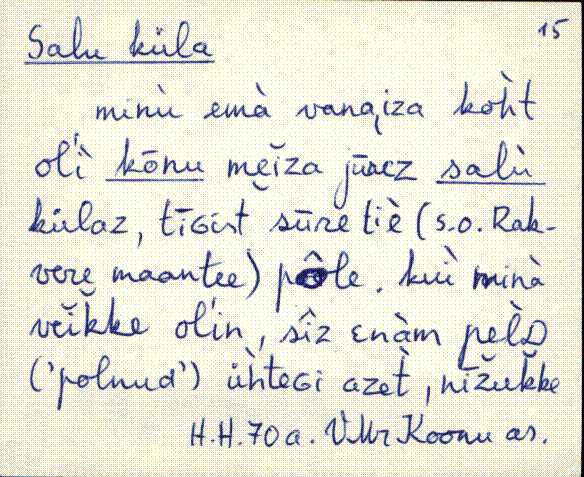 15
Salu küla
minù emà vanaiza kòht
oľì kōnu mĕīza jūręz salù
külaz, tīGist sūre tiè (s.o. Rak-
vere maantee) pôle. kuì minà
vĕikke olin, sîz enàm pelD
('polnud') ühteGi azet, nīžukke
H.H. 70 a. VMr Koonu as.